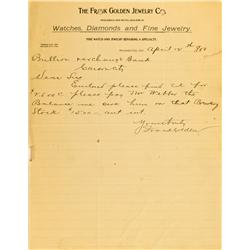 THE FRANK GOLDEN JEWELRY CO.
Watches, Diamonds and Fine Jewelry.
FINE WATCH AND JEWELRY REPAIRING A SPECIALTY.
April 2th 190
Bullion & Exchange Bank
Carson City
Dear Sir
Enclosed please find ck for
please pay Mr Webber the
Balance we owe him on that Brewery
Stock $1500- and int.
Yours truly
Frank Golden